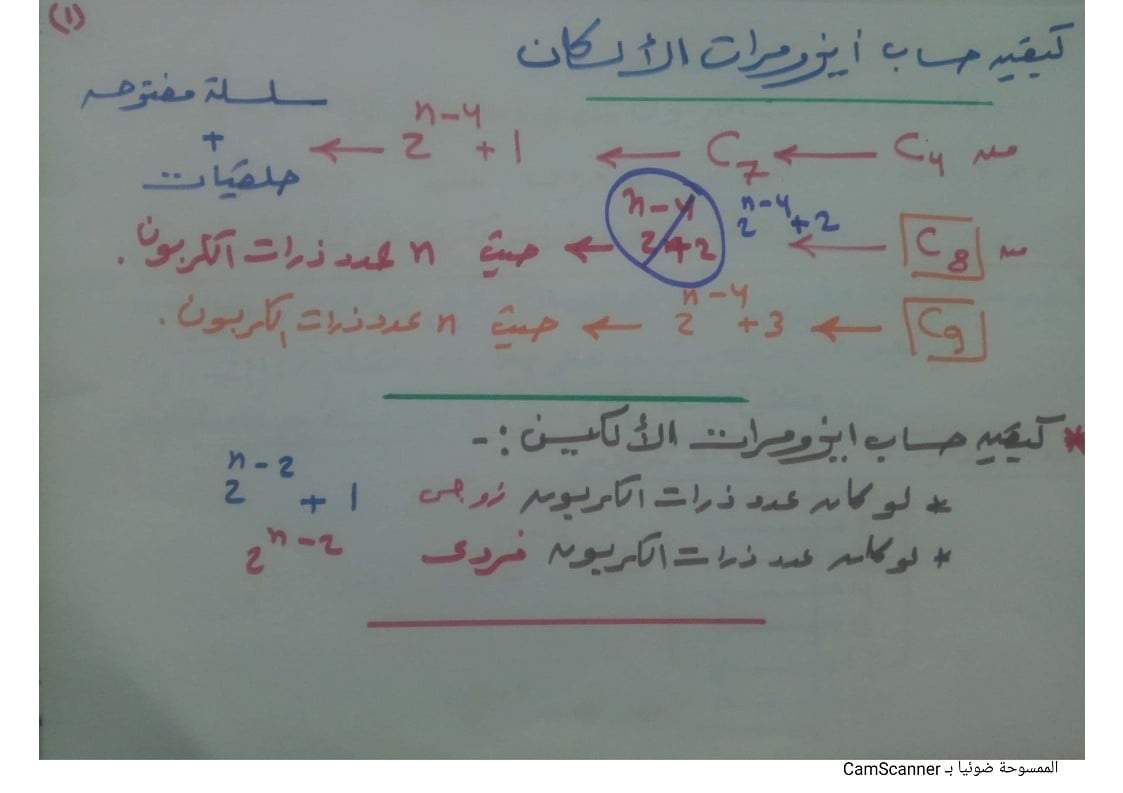 (١)
كيفية حساب أيزومرات الألكان
من C₄ ← C₇ ← 2ⁿ⁻⁴ + 1 ← سلسلة مفتوحه
+
حلقيات
من C₈ ← 2ⁿ⁻⁴ + 2 2ⁿ⁻⁴ + 2 ← حيث n عدد ذرات الكربون.
C₉ ← 2ⁿ⁻⁴ + 3 ← حيث n عدد ذرات الكربون.
* كيفية حساب ايزومرات الألكين :-
* لو كان عدد ذرات الكربون زوجى 2ⁿ⁻² + 1
* لو كان عدد ذرات الكربون فردى 2ⁿ⁻²
الممسوحة ضوئيا بـ CamScanner